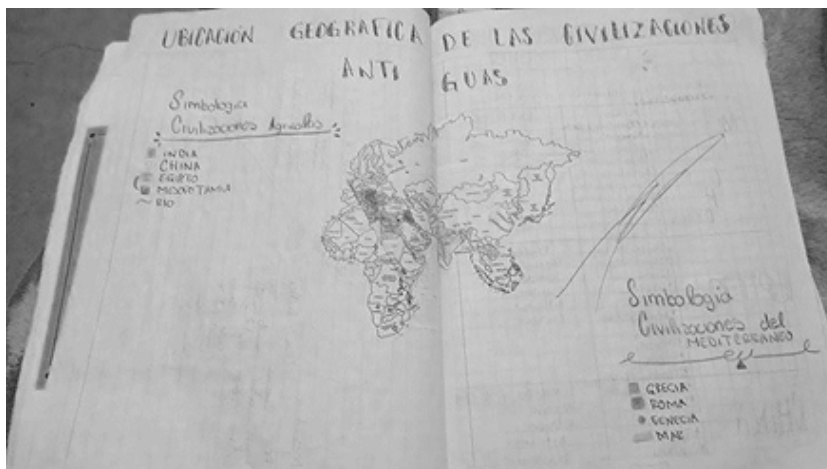 UBICACIÓN GEOGRAFICA DE LAS CIVILIZACIONES
ANTIGUAS
Simbologia
Civilizaciones Agricolas
INDIA
CHINA
EGIPTO
MESOPOTAMIA
RIO
Simbologia
Civilizaciones del
MEDITERRANEO
GRECIA
ROMA
FENECIA
MAR